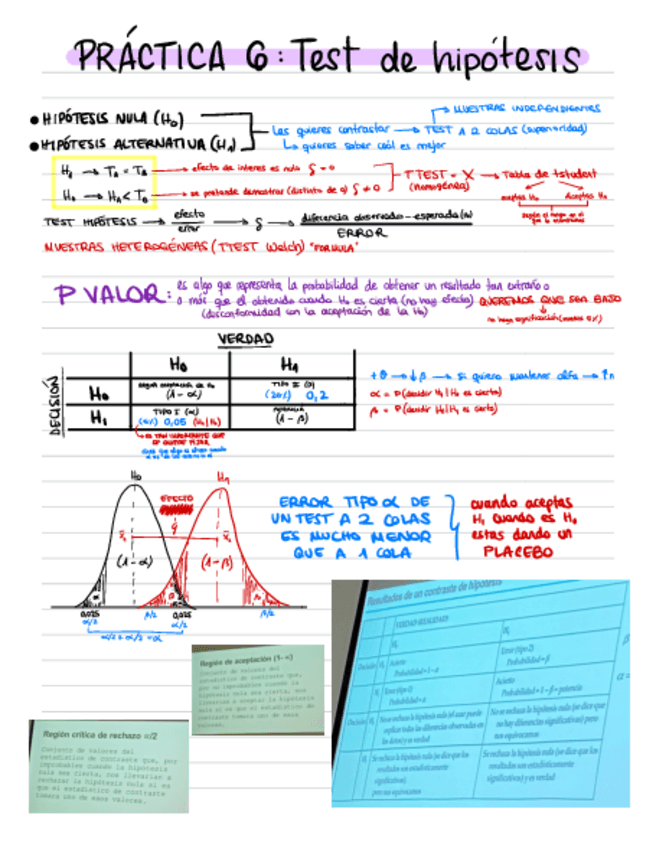 PRÁCTICA 6: Test de hipótesis
● HIPÓTESIS NULA (H₀)
● HIPÓTESIS ALTERNATIVA (H₁)
Las quieres contrastar → TEST A 2 COLAS (superioridad)
→ MUESTRAS INDEPENDIENTES
↳ quieres saber cuál es mejor
→ efecto de interes es nulo δ = 0
→ se pretende demostrar (distinto de 0) δ ≠ 0
T TEST = X → Tabla de tstudent
(homogénea)
aceptas H₁
Aceptas H₀
TEST HIPÓTESIS → efecto / error → δ → diferencia observada - esperada (H₀) / ERROR
MUESTRAS HETEROGÉNEAS (TTEST Welch) "FORMULA"
P VALOR: es algo que representa la probabilidad de obtener un resultado tan extraño o
o más que el obtenido cuando H₀ es cierta (no hay efecto) QUEREMOS QUE SEA BAJO
(disconformidad con la aceptación de la H₀)
VERDAD
H₀ H₁
DECISIÓN
H₀ (1-α) TIPO II (β) (20%) 0,2
H₁ TIPO I (α) (5%) 0,05 (H₁|H₀) potencia (1-β)
+θ → ↓β → si quiero mantener alfa → ↑n
α = P(decidir H₁ | H₀ es cierta)
β = P(decidir H₀ | H₁ es cierta)
H₀ H₁
EFECTO
(1-α) (1-β)
α β
0,025 β/2 0,025 β/2
α/2 α/2
α/2 + α/2 = α
ERROR TIPO α DE
UN TEST A 2 COLAS
ES MUCHO MENOR
QUE A 1 COLA
cuando aceptas
H₁ cuando es H₀
estas dando un
PLACEBO
Región de aceptación (1-α)
Conjunto de valores del
estadístico de contraste que,
Región crítica de rechazo α/2
Conjunto de valores del
estadístico de contraste que, por
improbables cuando la hipótesis
nula sea cierta, nos llevarían a
rechazar la hipótesis nula si es
que el estadístico de contraste
tomara uno de esos valores.
Resultados de un contraste de hipótesis
VERDAD-REALIDAD
H₀ H₁
Decisión H₀ Acierto
Probabilidad = 1 - α
Error (tipo 2)
Probabilidad = β
H₁ Error (tipo 1)
Probabilidad = α
Acierto
Probabilidad = 1 - β = potencia
Decisión H₀ No se rechaza la hipótesis nula (el azar puede
explicar todas las diferencias observadas en
los datos) y es verdad
No se rechaza la hipótesis nula (se dice que
no hay diferencias significativas) pero
nos equivocamos
H₁ Se rechaza la hipótesis nula (se dice que los
resultados son estadísticamente
significativos)
pero nos equivocamos
Se rechaza la hipótesis nula (se dice que los
resultados son estadísticamente
significativos) y es verdad
β
α =